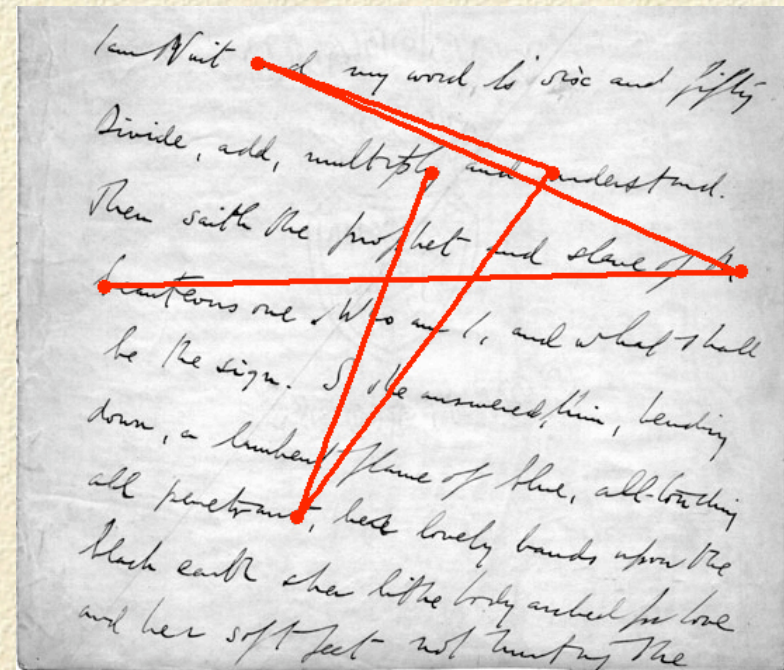 I am Nuit & my word is six and fifty
Divide, add, multiply and understand.
Then saith the prophet and slave of the
beauteous one. Who am I, and what shall
be the sign. So she answered him, bending
down, a lambent flame of blue, all-touching
all penetrant, her lovely hands upon the
black earth & her lithe body arched for love
and her soft feet not hurting the